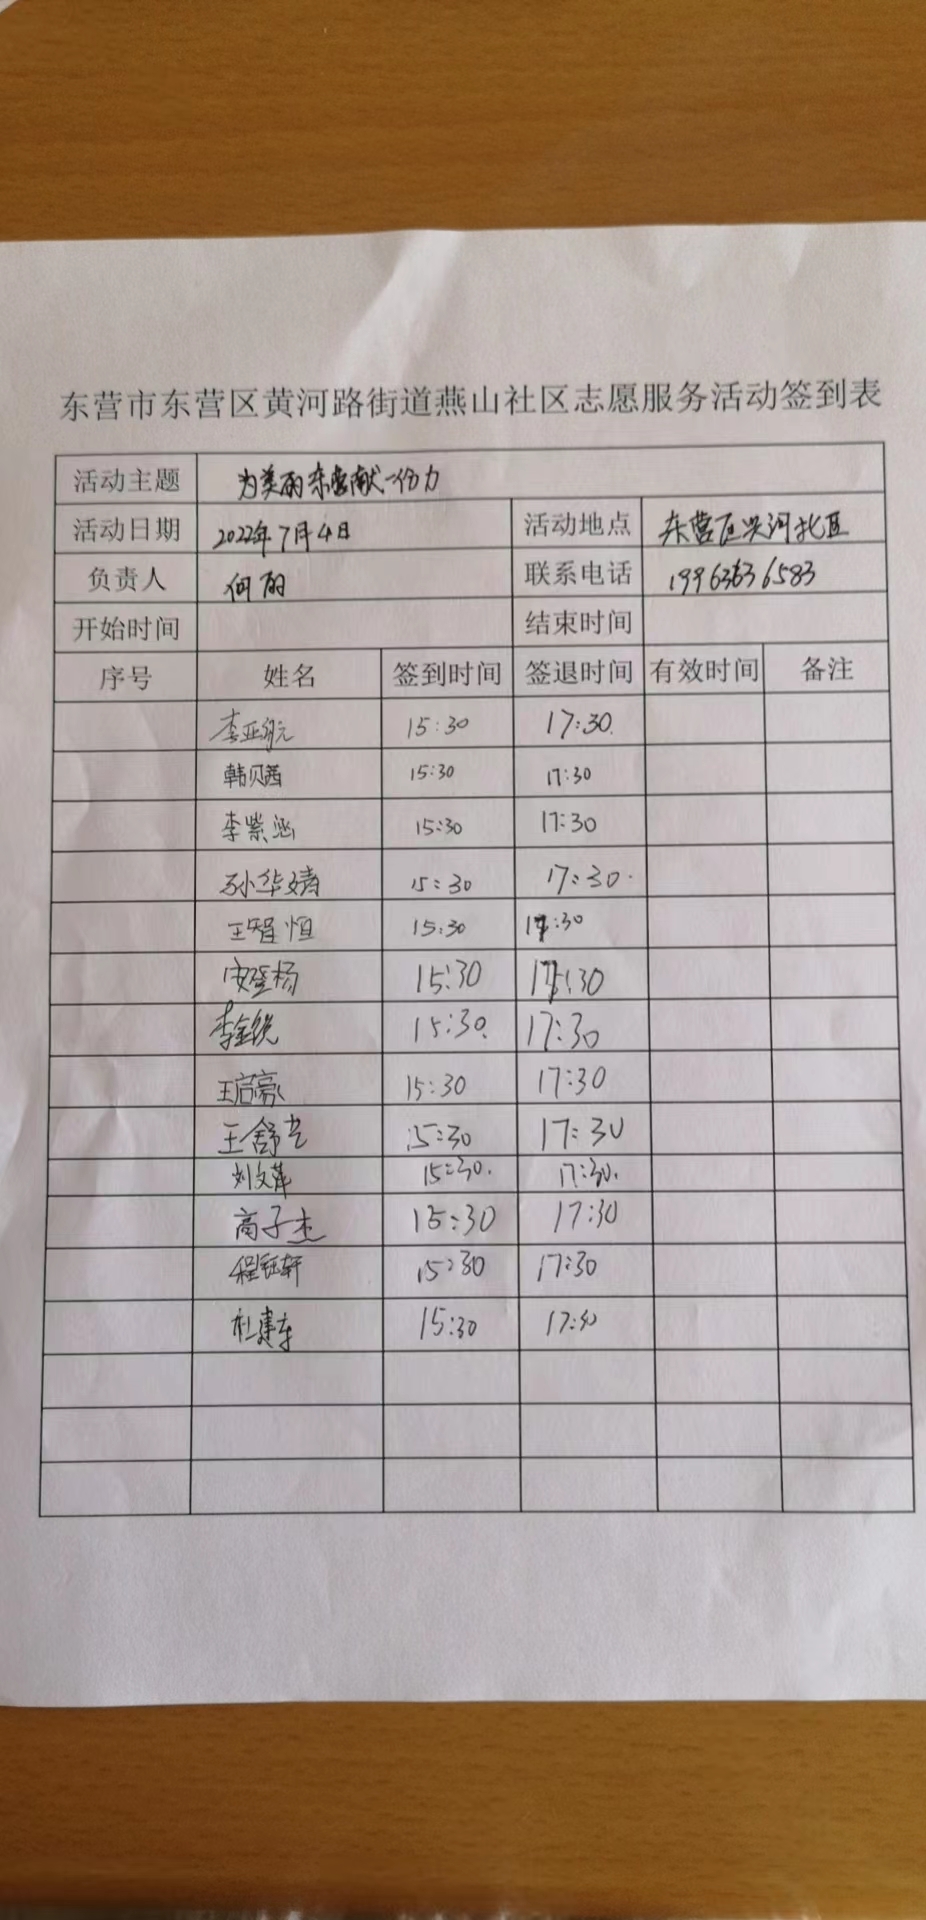 东营市东营区黄河路街道燕山社区志愿服务活动签到表
活动主题 为美丽东营献一份力
活动日期 2022年7月4日 活动地点 东营区兴河北区
负责人 何丽 联系电话 19963636583
开始时间 结束时间
序号 姓名 签到时间 签退时间 有效时间 备注
李亚航 15:30 17:30
韩贝茜 15:30 17:30
李紫涵 15:30 17:30
孙华婧 15:30 17:30
王智恒 15:30 17:30
安登杨 15:30 17:30
李金锐 15:30 17:30
王启豪 15:30 17:30
王舒 15:30 17:30
刘文 15:30 17:30
高子杰 15:30 17:30
程钰轩 15:30 17:30
杜建东 15:30 17:30